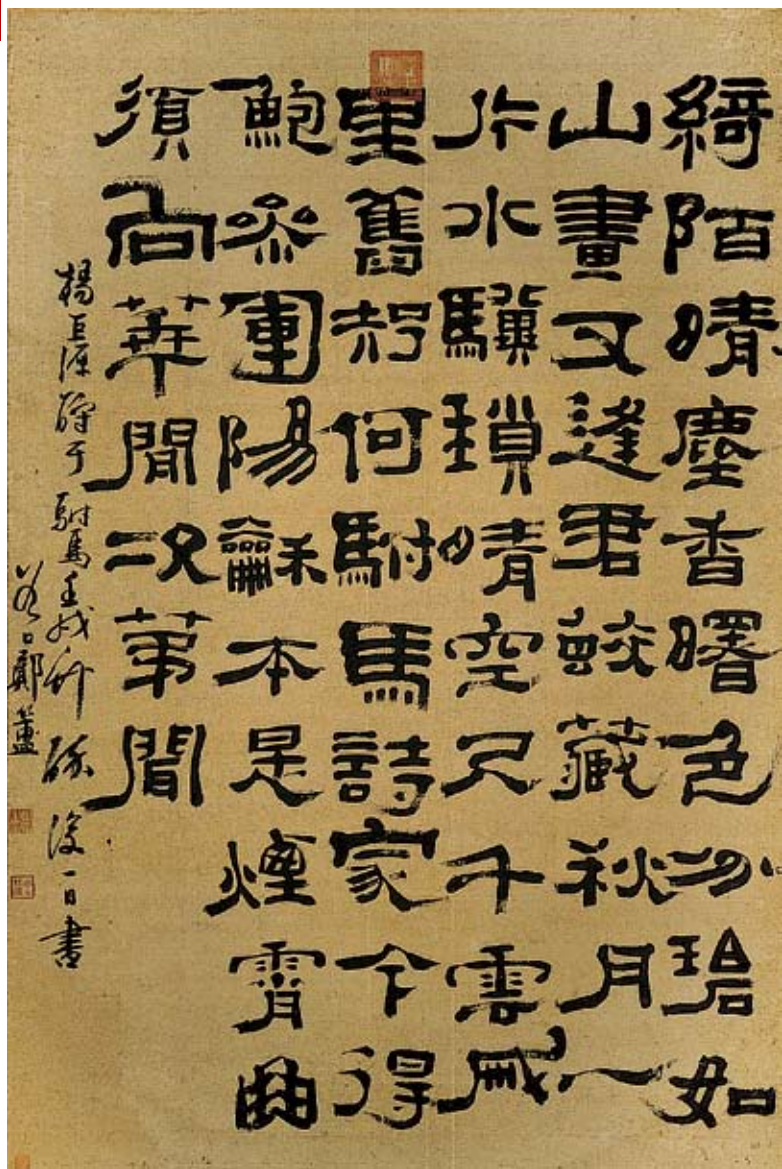 綺陌晴塵香曙色分碧如
山畫又逢君蛟藏秋月一
片水驥瑣晴空尺千雲戚
里舊知何駙馬詩家今得
鮑參軍陽龢本是煙霄曲
須向華閒次第聞
楊巨源酹于駙馬壬戌竹醉後一日書
谷口鄭簠